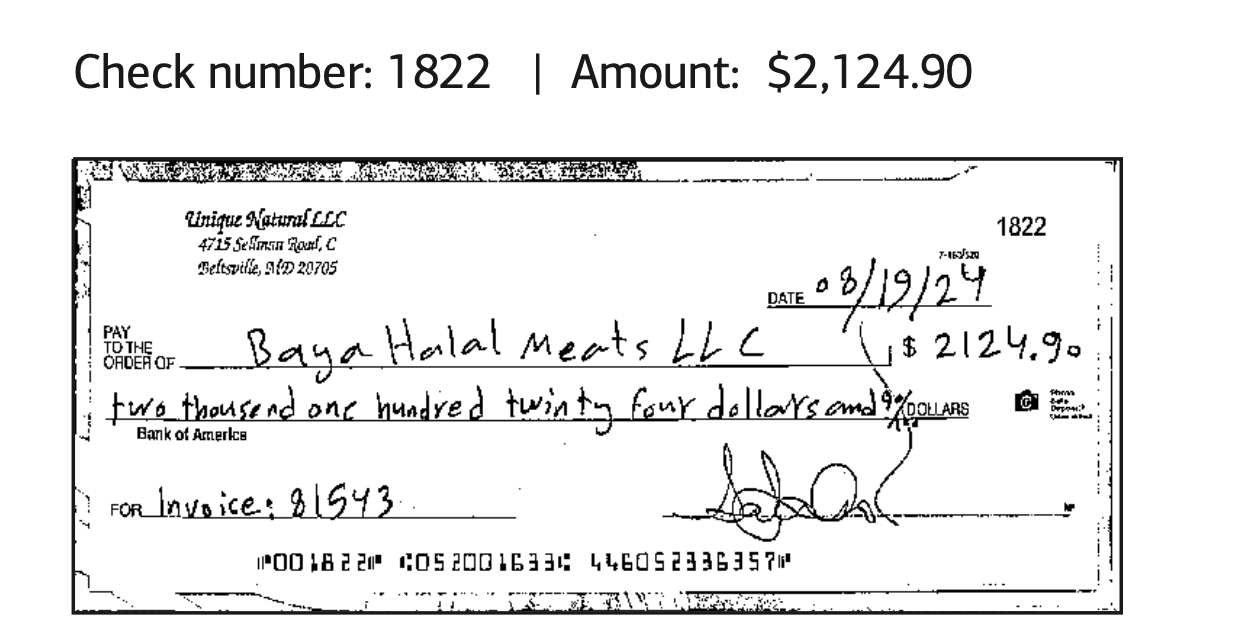 Check number: 1822 | Amount: $2,124.90
Unique Natural LLC
4715 Sellman Road, C
Beltsville, MD 20705
1822
DATE 08/19/24
PAY
TO THE
ORDER OF Baya Halal Meats LLC $ 2124.90
two thousend one hundred twinty four dollars and 90/100 DOLLARS
Bank of America
FOR Invoice: 81543
MP
⑈001822⑈ ⑆052001633⑆ 446052336357⑈